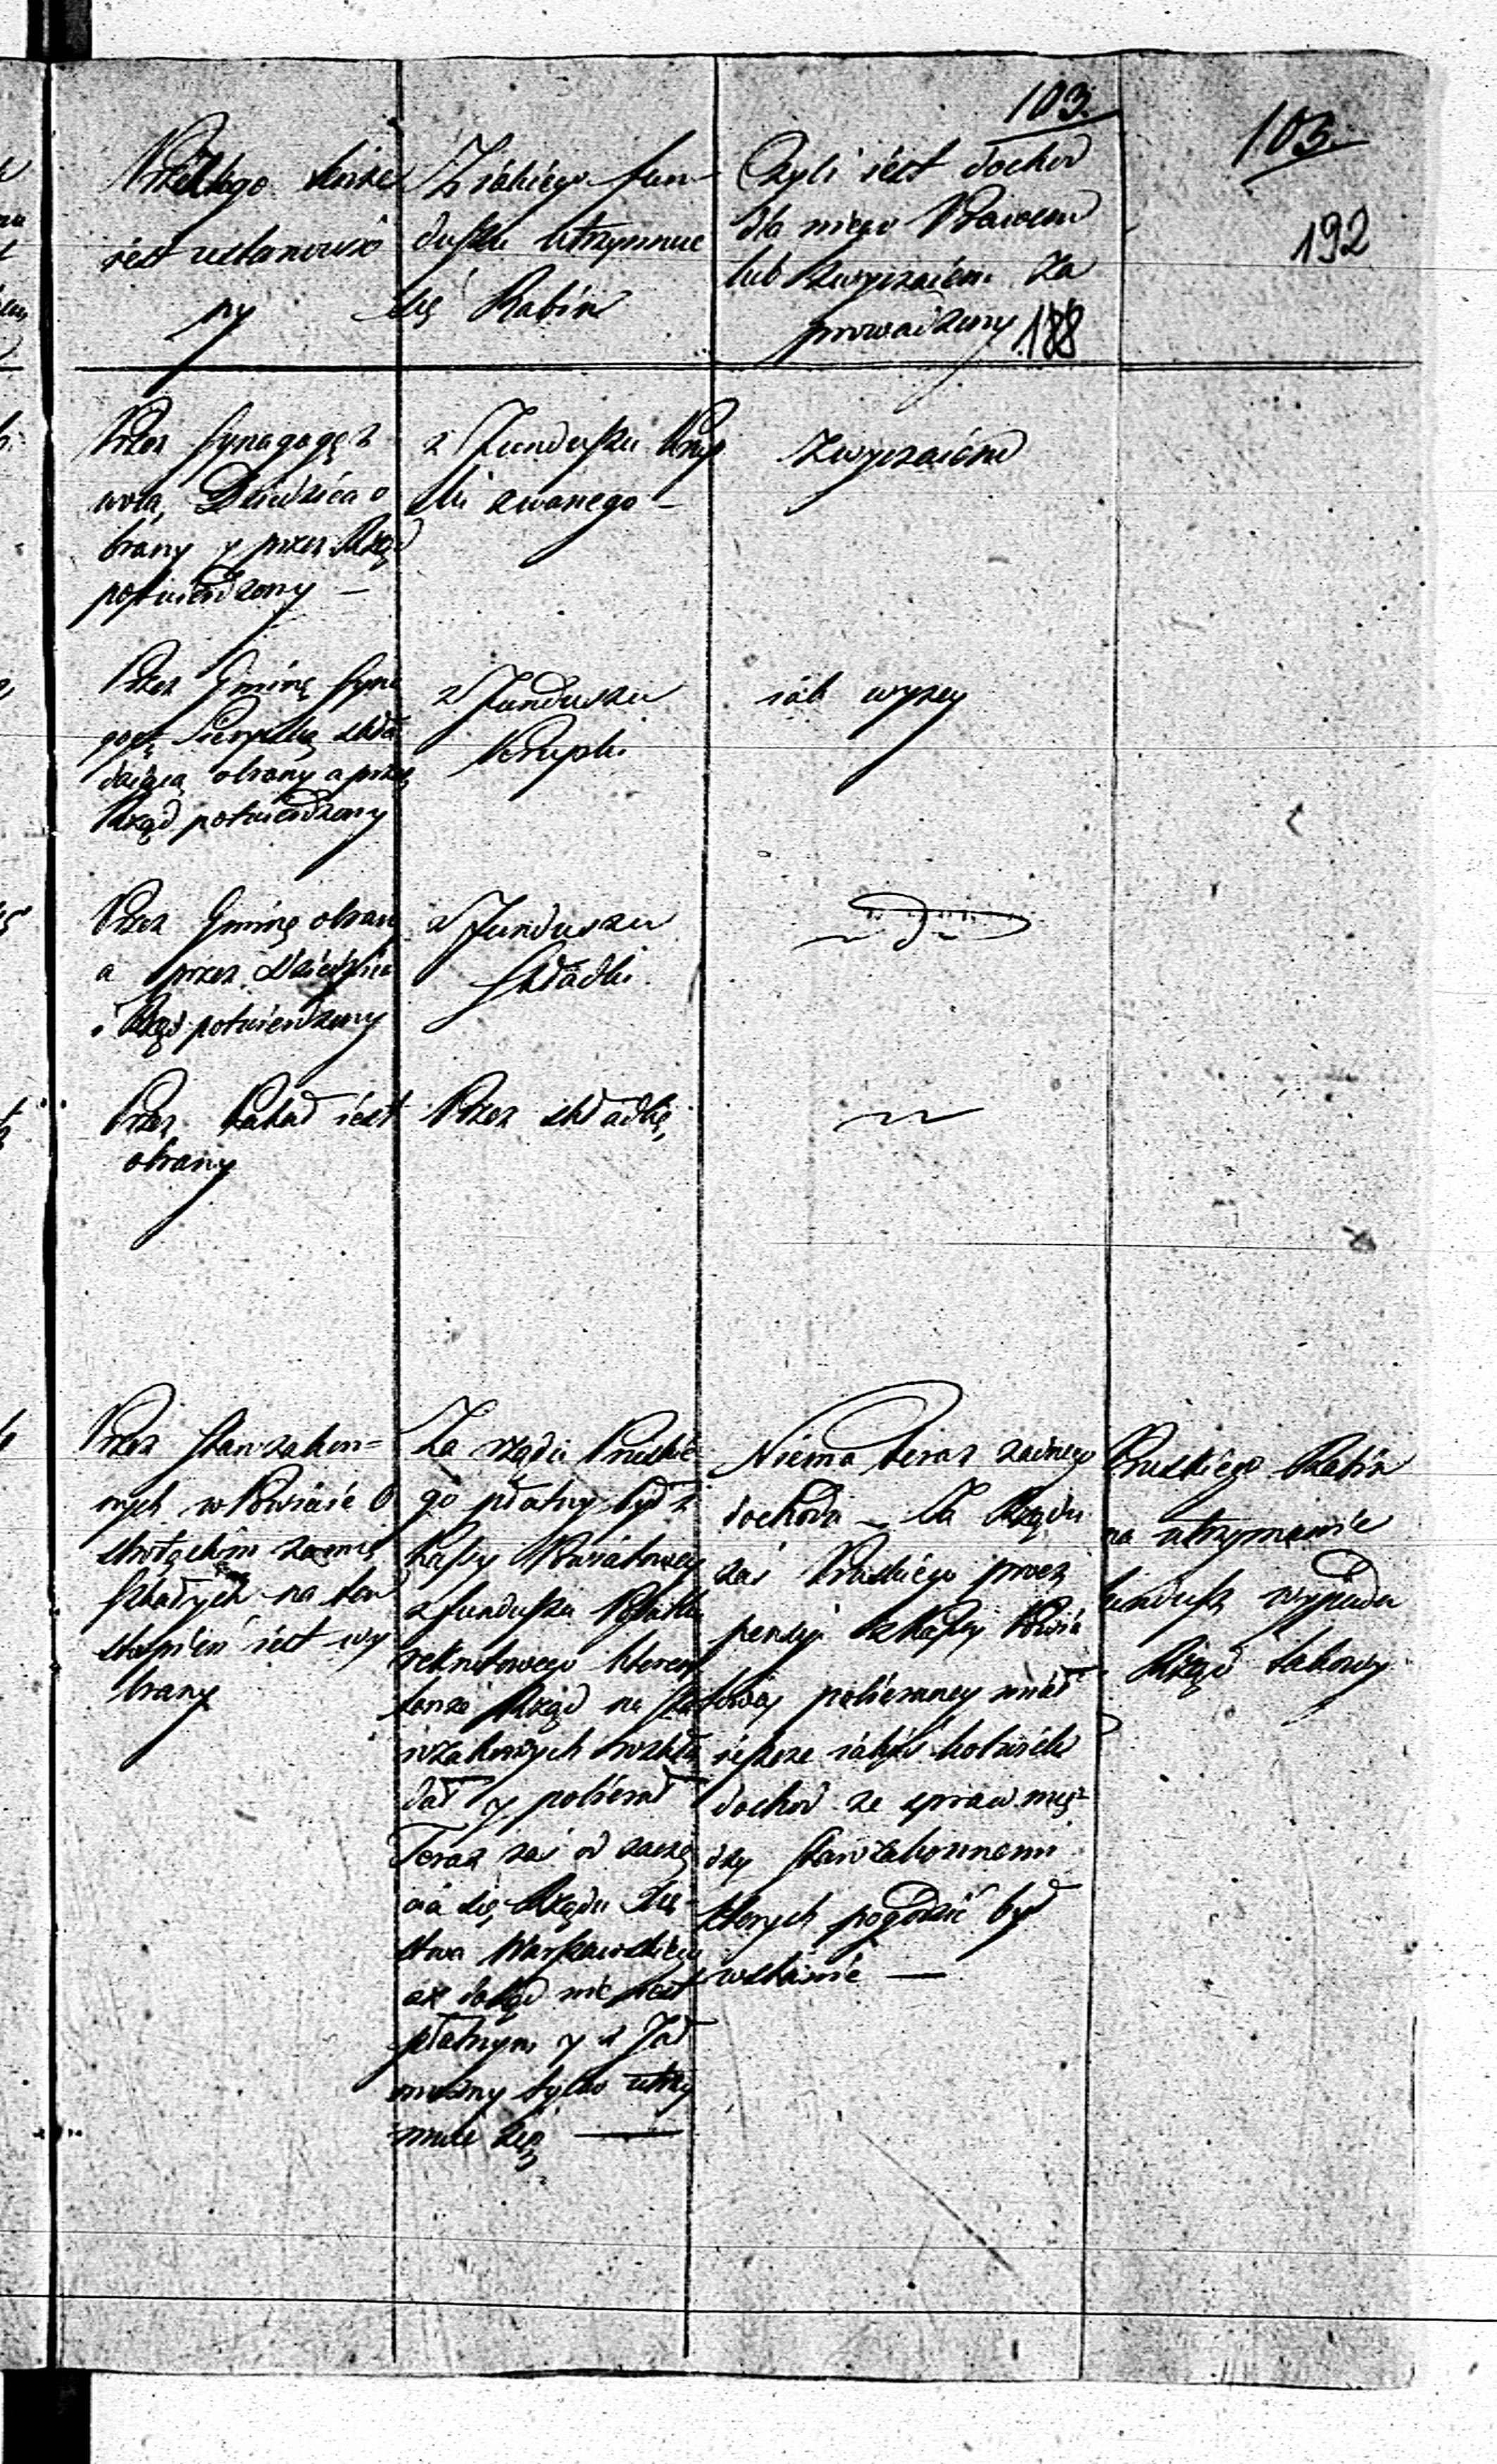 103.
103.
192
Przez kogo
iest ustanowio
ny
Z iakiego fun-
duszu utrzymuie
się Rabin
Czyli iest dochod
dla niego Prawem
lub zwyczaiem za
prowadzony
188
Przez Synagogę z
wolą Dziedzica o
brany y przez Rząd
potwierdzony —
z Funduszu Krup
ki zwanego —
Zwyczaiem
Przez Gminę Syna
gogę Sierpską skła
daiącą obrany a przez
Rząd potwierdzony
z Funduszu
Krupki
iak wyzey
Przez Gminę obrany
a przez Dziedzica
i Rząd potwierdzony
z Funduszu
Składki
Przez Kahał iest
obrany
Przez składkę
Przez Starozakon=
nych w Powiecie O
strołęckim zamie
szkałych na ten
stopień iest wy
brany
Za rządu Pruskie
go płatny był z
Kassy Powiatowey
z funduszu Podatku
rekrutowego ktoren
tenze Rząd na Sta
rozakonnych rozkła
dał y pobierał
Teraz zaś od zaczę
cia się Rządu Xię-
stwa Warszawskiego
az dotąd nie iest
płatnym y z Jał
muzny tylko utrzy
muie się —
Niema teraz zadnego
dochodu — Za Rządu
zaś Pruskiego przez
pensyi z Kassy Powia
towey pobieraney miał
ieszcze iakiś kolwiek
dochod ze spraw mię-
dzy Starozakonnemi
ktorych pogodzić był
w stanie —
Pruskiego Rabin
na utrzymanie
fundusz wypada
Rząd takowy